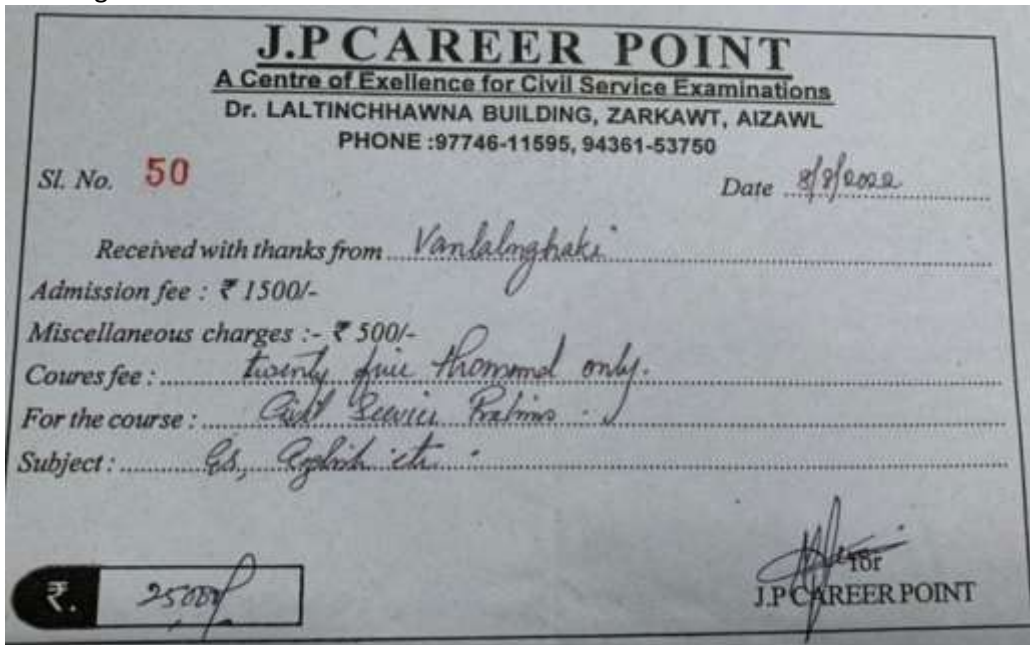 J.P CAREER POINT
A Centre of Exellence for Civil Service Examinations
Dr. LALTINCHHAWNA BUILDING, ZARKAWT, AIZAWL
PHONE :97746-11595, 94361-53750
Sl. No. 50 Date 8/8/2022
Received with thanks from Vanlalnghaki
Admission fee : ₹ 1500/-
Miscellaneous charges :- ₹ 500/-
Coures fee : twenty five thousand only.
For the course : Civil Service Prelims
Subject : GS, English etc
for
₹. 25000/- J.P CAREER POINT